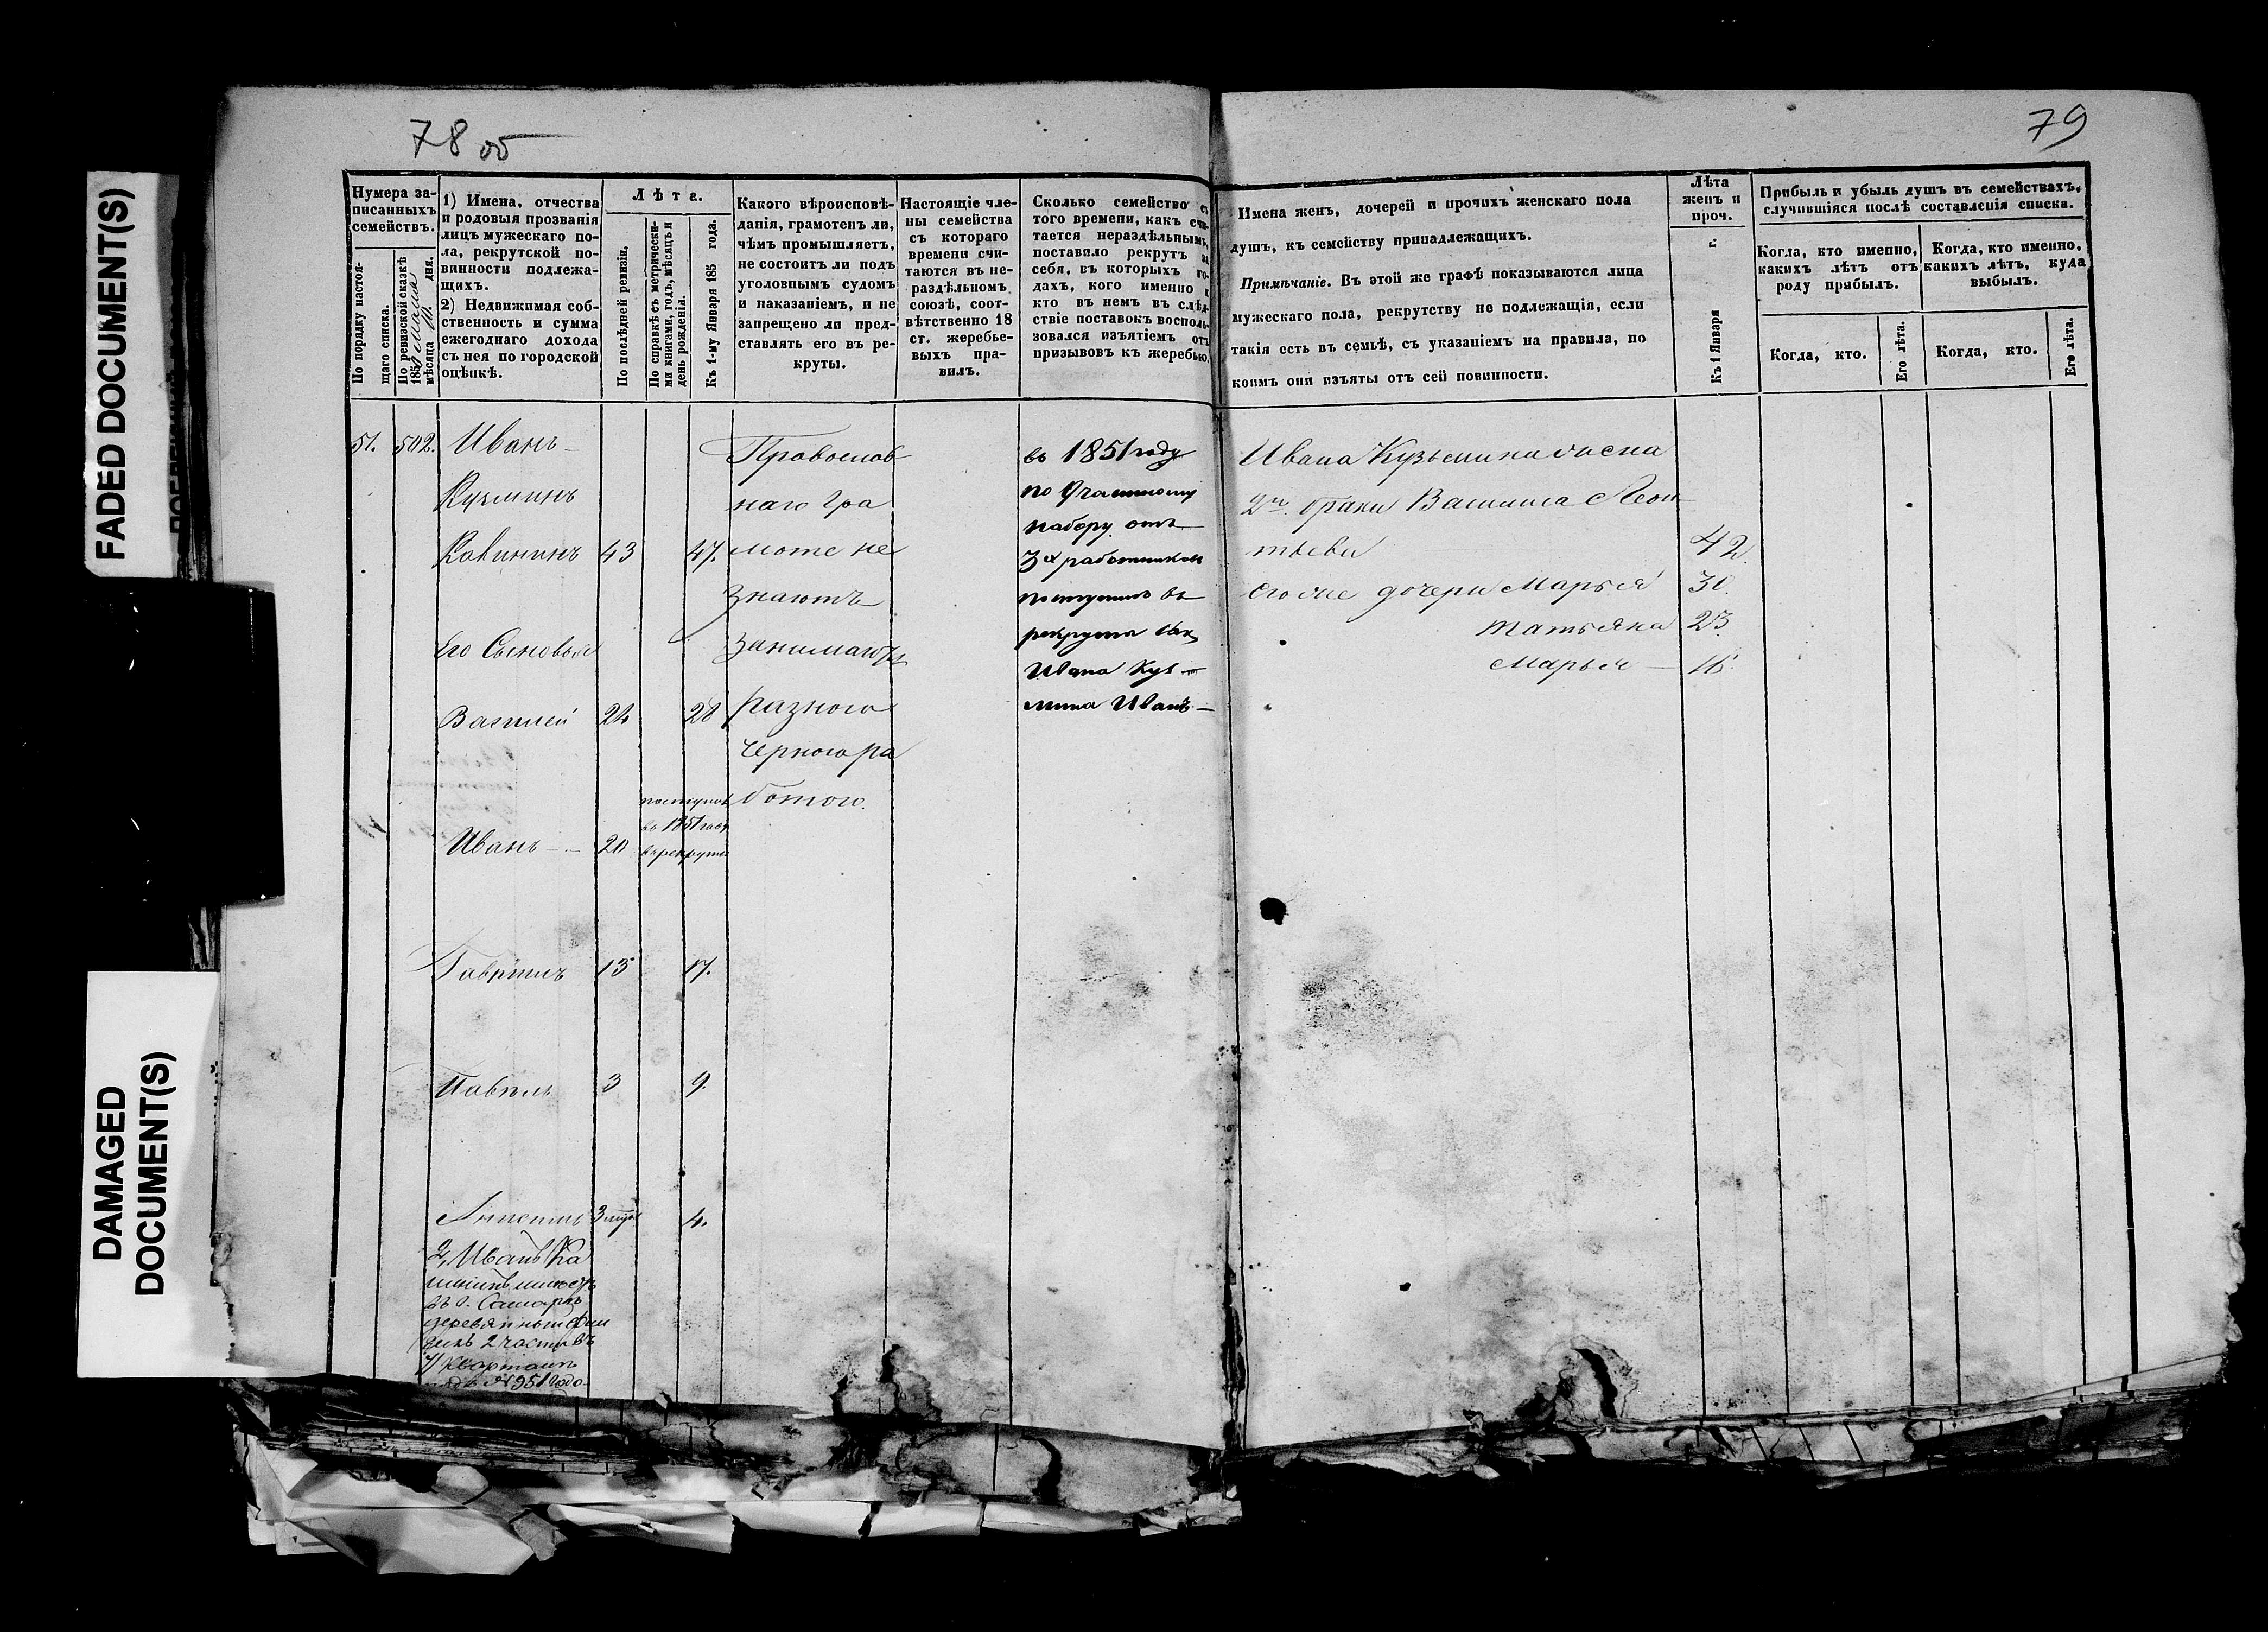 78 об
79
FADED DOCUMENT(S)
DAMAGED
DOCUMENT(S)
Нумера за-
писанныхъ
семействъ.
По порядку настоя-
щаго списка.
По ревизской сказкѣ
185
мѣсяца дня.
1) Имена, отчества
и родовыя прозванія
лицъ мужескаго по-
ла, рекрутской по-
винности подлежа-
щихъ.
2) Недвижимая соб-
ственность и сумма
ежегоднаго дохода
съ нея по городской
оцѣнкѣ.
Лѣта.
По послѣдней ревизіи.
По справкѣ съ метрически-
ми книгами, годъ, мѣсяцъ и
день рожденія.
Къ 1-му Января 185 года.
Какого вѣроисповѣ-
данія, грамотенъ ли,
чѣмъ промышляетъ,
не состоитъ ли подъ
уголовнымъ судомъ
и наказаніемъ, и не
запрещено ли пред-
ставлять его въ ре-
круты.
Настоящіе чле-
ны семейства
съ котораго
времени счи-
таются въ не-
раздѣльномъ
союзѣ, соот-
вѣтственно 18
ст. жеребье-
выхъ пра-
вилъ.
Сколько семейство съ
того времени, какъ счи-
тается нераздѣльнымъ,
поставило рекрутъ за
себя, въ которыхъ го-
дахъ, кого именно и
кто въ немъ въ слѣд-
ствіе поставокъ восполь-
зовался изъятіемъ отъ
призывовъ къ жеребью.
Имена женъ, дочерей и прочихъ женскаго пола
душъ, къ семейству принадлежащихъ.
Примѣчаніе. Въ этой же графѣ показываются лица
мужескаго пола, рекрутству не подлежащія, если
такія есть въ семьѣ, съ указаніемъ на правила, по
коимъ они изъяты отъ сей повинности.
Лѣта
женъ и
проч.
Къ 1 Января г.
Прибыль и убыль душъ въ семействахъ,
случившіяся послѣ составленія списка.
Когда, кто именно,
какихъ лѣтъ отъ
роду прибылъ.
Когда, кто именно,
какихъ лѣтъ, куда
выбылъ.
Когда, кто.
Его лѣта.
Когда, кто.
Его лѣта.
51. 502. Иванъ
Кузминъ
43 47.
Его Сыновья
Василий 24 28
Иванъ 20
поступилъ
въ 1851 году
в рекруты
Гаврилъ 13 17.
Павелъ 3 9.
4.
2, Иванъ Ка
въ г. Самаръ
деревянный
2 части въ
кварталъ
Православ
наго гра
моте не
знаютъ
занимаются
разного
черного ра
ботою.
во 1851 году
по
набору отъ
3х работников
поступилъ въ
рекруты сын
Ивана Куз
мина Иванъ
Ивана Кузьмина жена
2го брака Василиса Леон
тьева 42
его же дочери Марья 30.
Татьяна 23.
Марья